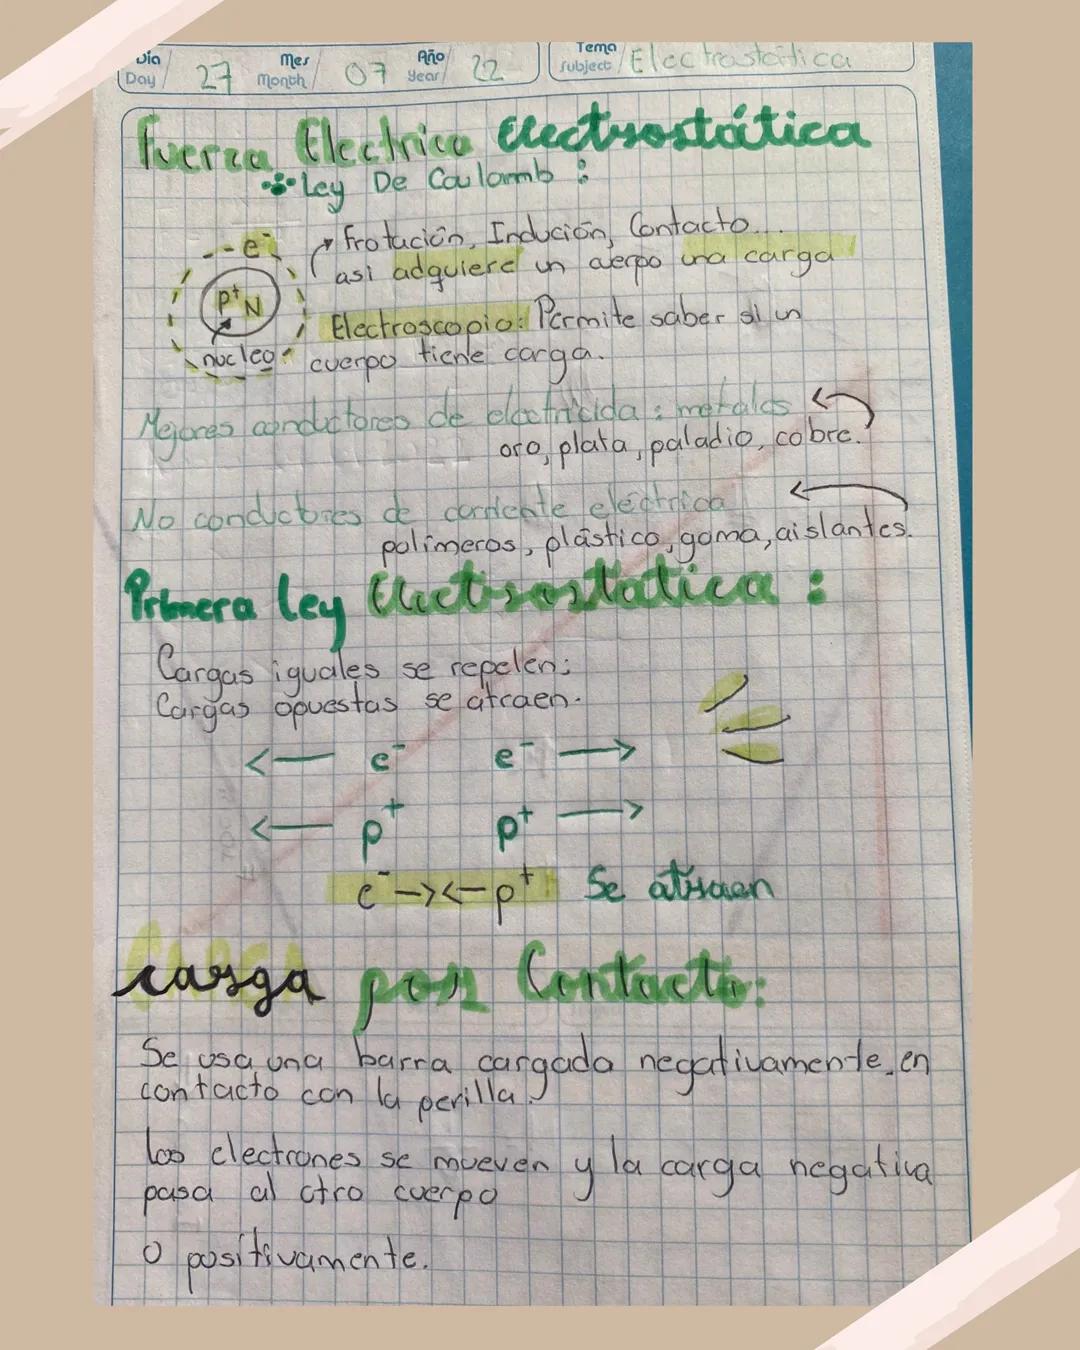 Dia Mes Año Tema
Day 27 Month 07 Year 22 Subject Electrostática
Fuerza Electrica Electrostática
Ley De Coulomb :
e⁻ Frotación, Indución, Contacto...
asi adquiere un cuerpo una carga
p⁺ N
Electroscopio: Permite saber si un
nucleo cuerpo tiene carga.
Mejores conductores de electricida : metales
oro, plata, paladio, cobre.
No conductores de corriente eléctrica
polimeros, plástico, goma, aislantes.
Primera ley Electrostatica :
Cargas iguales se repelen;
Cargas opuestas se atraen.
<— e⁻ e⁻ —>
<— p⁺ p⁺ —>
e⁻ —><— p⁺ Se atraen
carga por Contacto:
Se usa una barra cargada negativamente en
contacto con la perilla.
los electrones se mueven y la carga negativa
pasa al otro cuerpo
o positivamente.